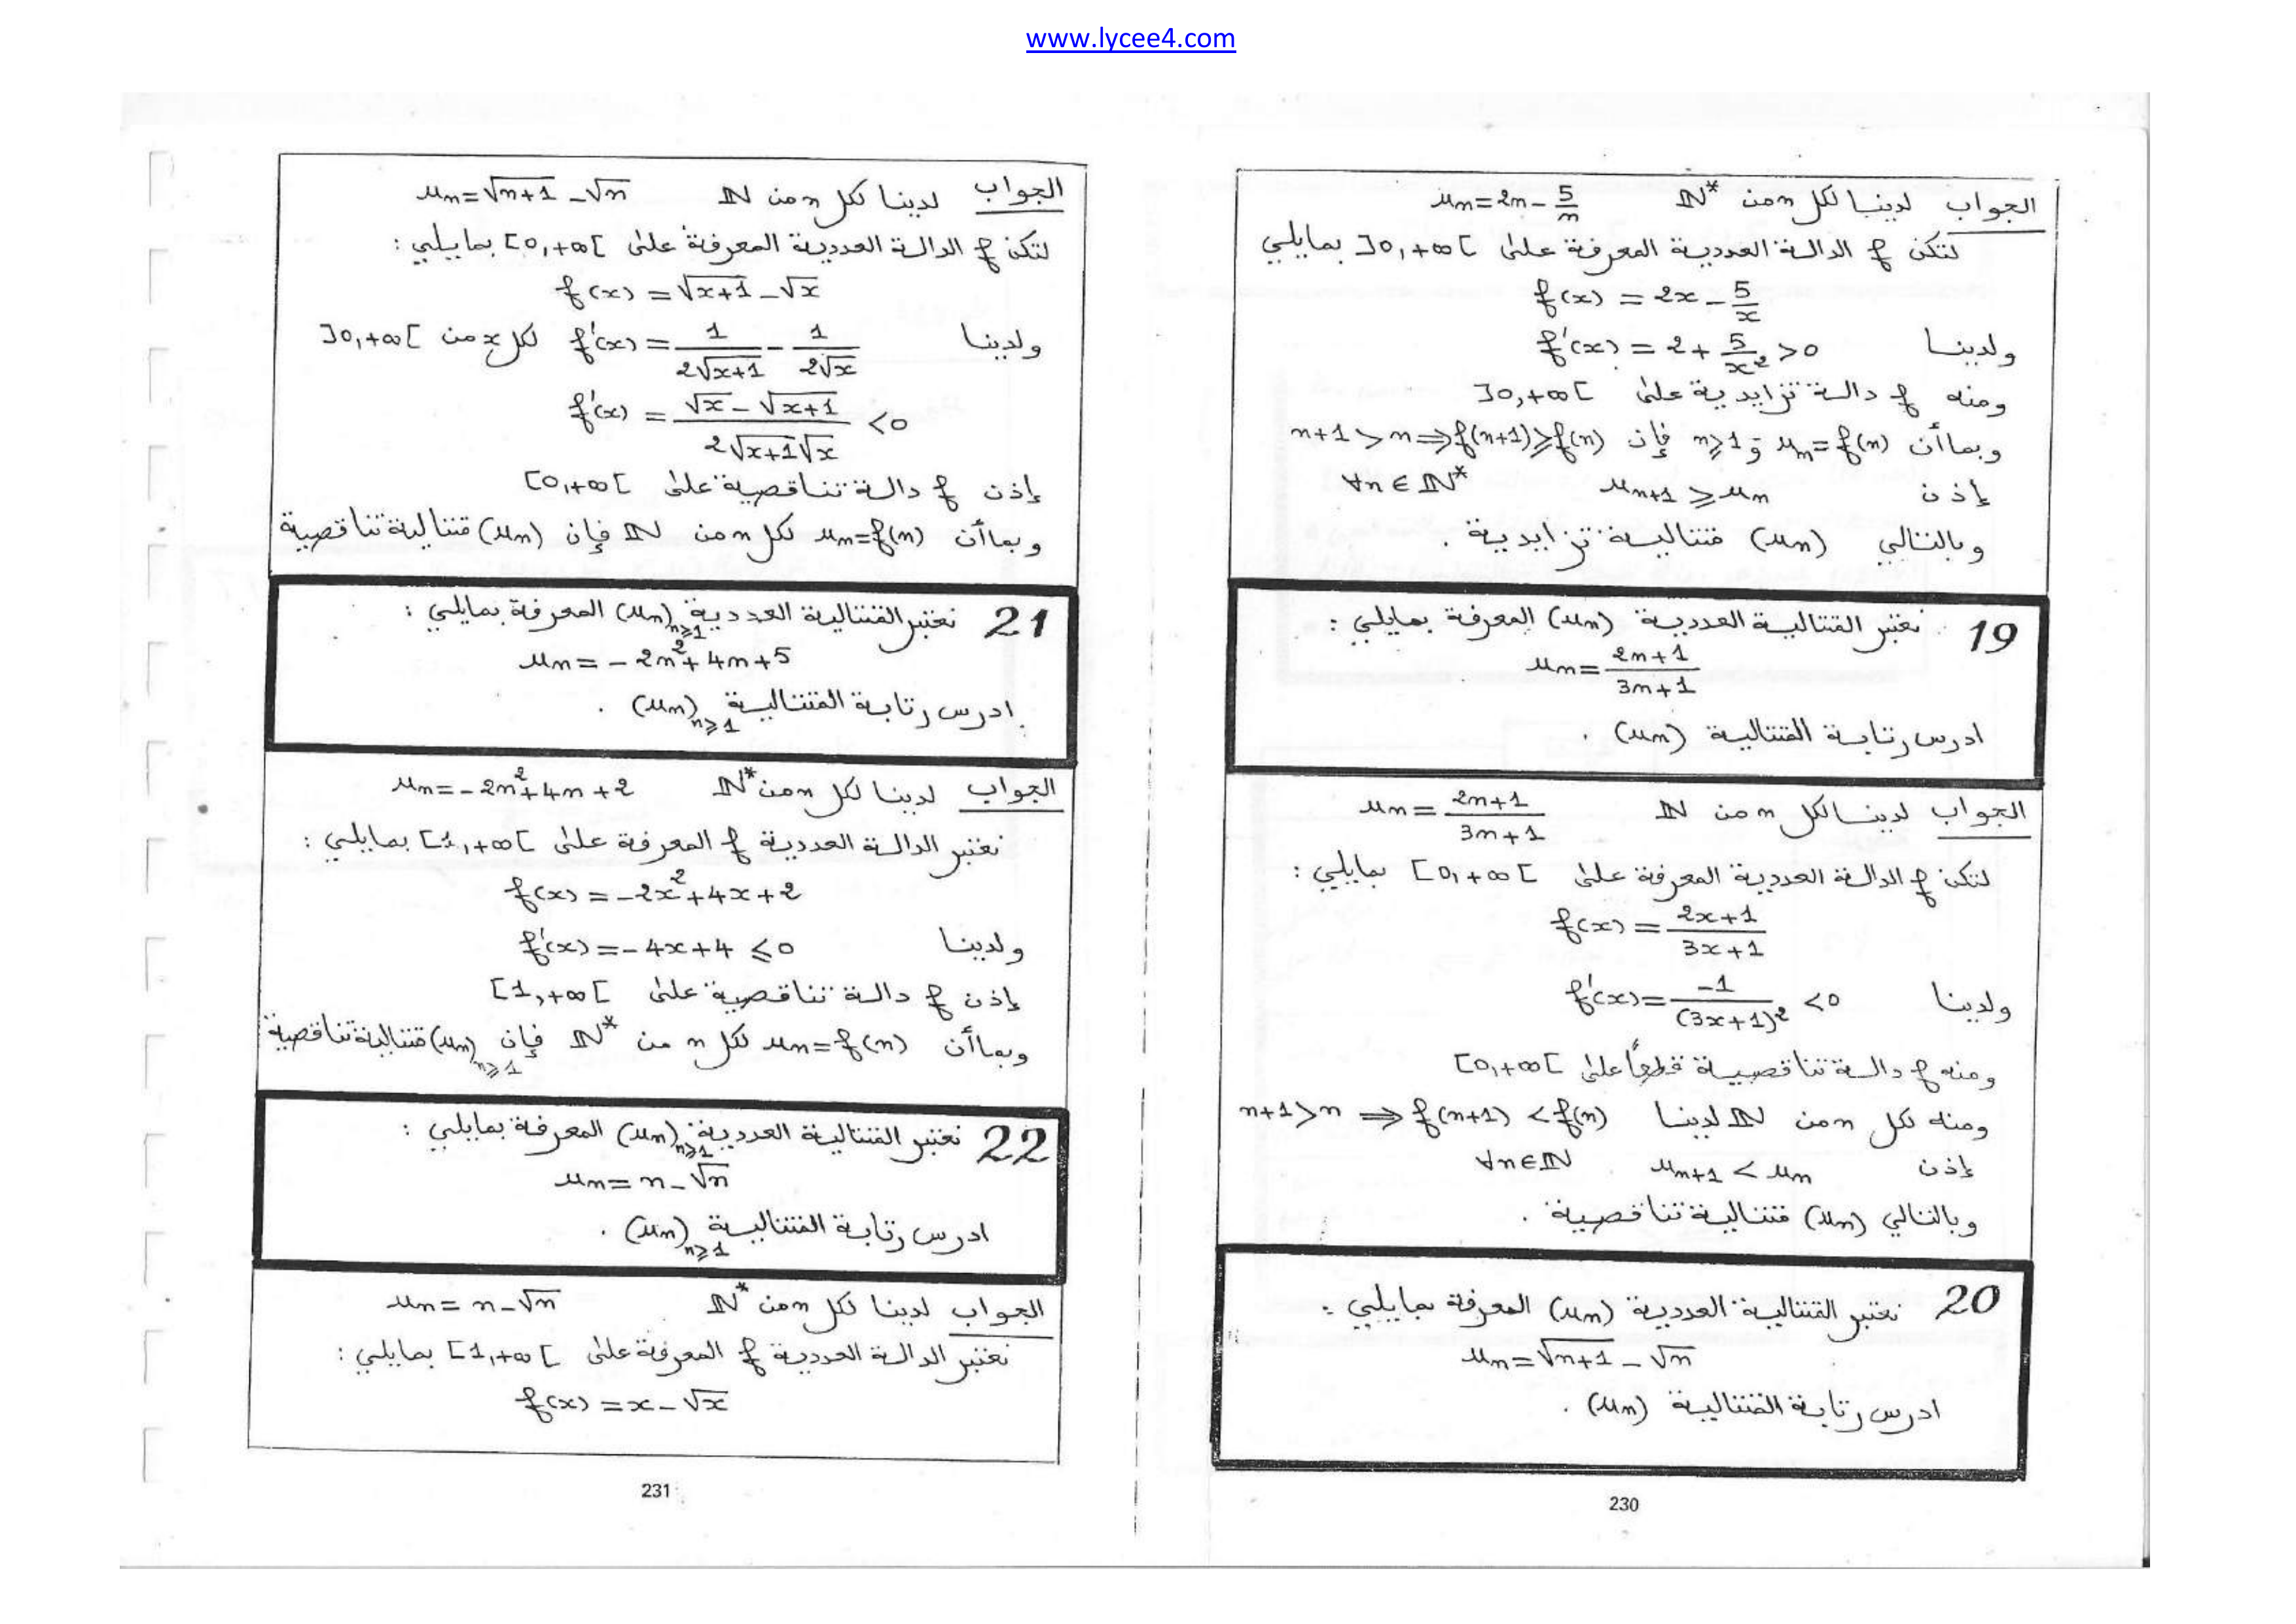 www.lycee4.com
الجواب لدينا لكل n من ℕ* uₙ=2n-5/n
لتكن f الدالة العددية المعرفة على ]0,+∞[ بمايلي
f(x) = 2x - 5/x
ولدينا f'(x) = 2+ 5/x² >0
ومنه f دالة تزايدية على ]0,+∞[
وبما أن uₙ=f(n) و n≥1 فإن n+1>n⇒f(n+1)≥f(n)
إذن uₙ₊₁ ≥ uₙ ∀n∈ℕ*
وبالتالي (uₙ) متتالية تزايدية .
19 نعتبر المتتالية العددية (uₙ) المعرفة بمايلي :
uₙ= (2n+1)/(3n+1)
ادرس رتابة المتتالية (uₙ) .
الجواب لدينا لكل n من ℕ uₙ= (2n+1)/(3n+1)
لتكن f الدالة العددية المعرفة على [0,+∞[ بمايلي :
f(x) = (2x+1)/(3x+1)
ولدينا f'(x)= -1/(3x+1)² <0
ومنه f دالة تناقصية قطعاً على [0,+∞[
ومنه لكل n من ℕ لدينا n+1>n ⇒ f(n+1) <f(n)
إذن uₙ₊₁ < uₙ ∀n∈ℕ
وبالتالي (uₙ) متتالية تناقصية .
20 نعتبر المتتالية العددية (uₙ) المعرفة بمايلي :
uₙ=√(n+1) - √n
ادرس رتابة المتتالية (uₙ) .
230
الجواب لدينا لكل n من ℕ uₙ=√(n+1) -√n
لتكن f الدالة العددية المعرفة على [0,+∞[ بمايلي :
f(x) =√(x+1) -√x
ولدينا f'(x) = 1/(2√(x+1)) - 1/(2√x) لكل x من ]0,+∞[
f'(x) = (√x - √(x+1))/(2√(x+1)√x) <0
إذن f دالة تناقصية على [0,+∞[
وبما أن uₙ=f(n) لكل n من ℕ فإن (uₙ) متتالية تناقصية
21 نعتبر المتتالية العددية (uₙ)n≥1 المعرفة بمايلي :
uₙ= - 2n²+4n+5
ادرس رتابة المتتالية (uₙ)n≥1 .
الجواب لدينا لكل n من ℕ* uₙ=-2n²+4n+2
نعتبر الدالة العددية f المعرفة على [1,+∞[ بمايلي :
f(x) = -2x²+4x+2
ولدينا f'(x) =-4x+4 ≤0
إذن f دالة تناقصية على [1,+∞[
وبما أن uₙ=f(n) لكل n من ℕ* فإن (uₙ)n≥1 متتالية تناقصية
22 نعتبر المتتالية العددية (uₙ)n≥1 المعرفة بمايلي :
uₙ= n-√n
ادرس رتابة المتتالية (uₙ)n≥1 .
الجواب لدينا لكل n من ℕ* uₙ= n-√n
نعتبر الدالة العددية f المعرفة على [1,+∞[ بمايلي :
f(x) =x-√x
231